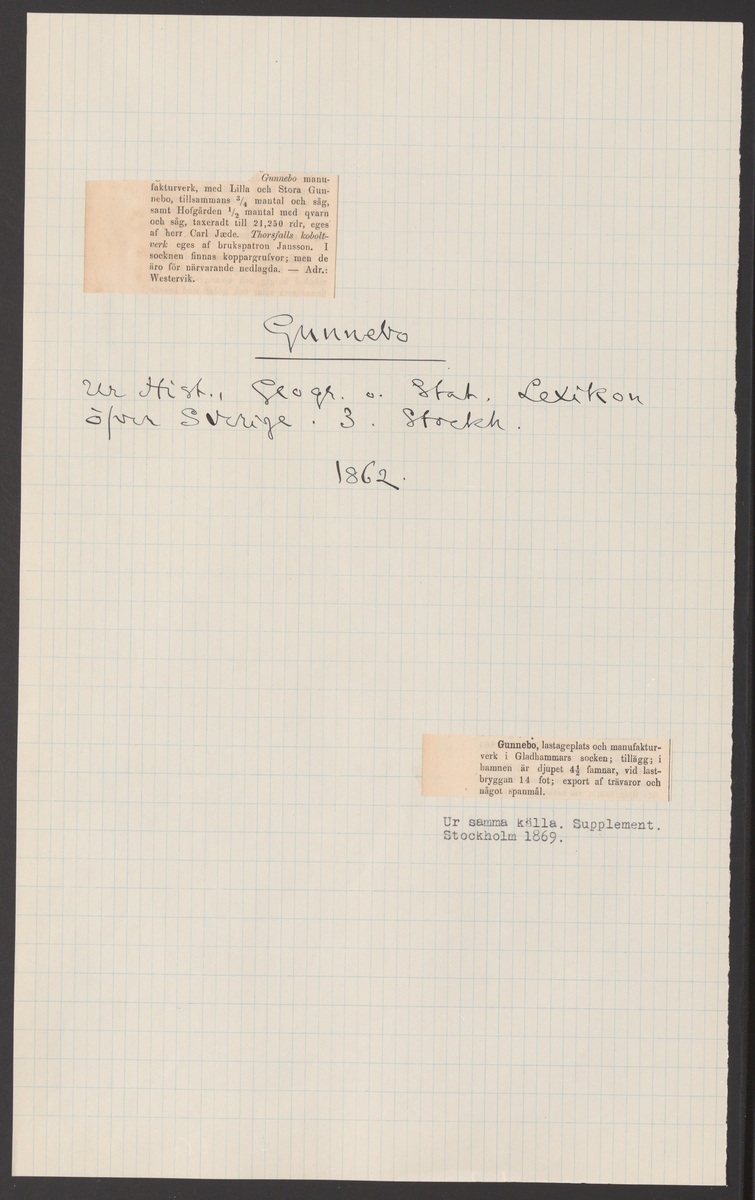 Gunnebo manu-
fakturverk, med Lilla och Stora Gun-
nebo, tillsammans 3/4 mantal och såg,
samt Hofgården 1/2 mantal med qvarn
och såg, taxeradt till 21,250 rdr, eges
af herr Carl Jæde. Thorsfalls kobolt-
verk eges af brukspatron Jansson. I
socknen finnas koppargrufvor; men de
äro för närvarande nedlagda. — Adr.:
Westervik.
Gunnebo
Ur Hist., Geogr. o. Stat. Lexikon
öfver Sverige. 3. Stockh.
1862.
Gunnebo, lastageplats och manufaktur-
verk i Gladhammars socken; tillägg; i
hamnen är djupet 4½ famnar, vid last-
bryggan 14 fot; export af trävaror och
något spanmål.
Ur samma källa. Supplement.
Stockholm 1869.